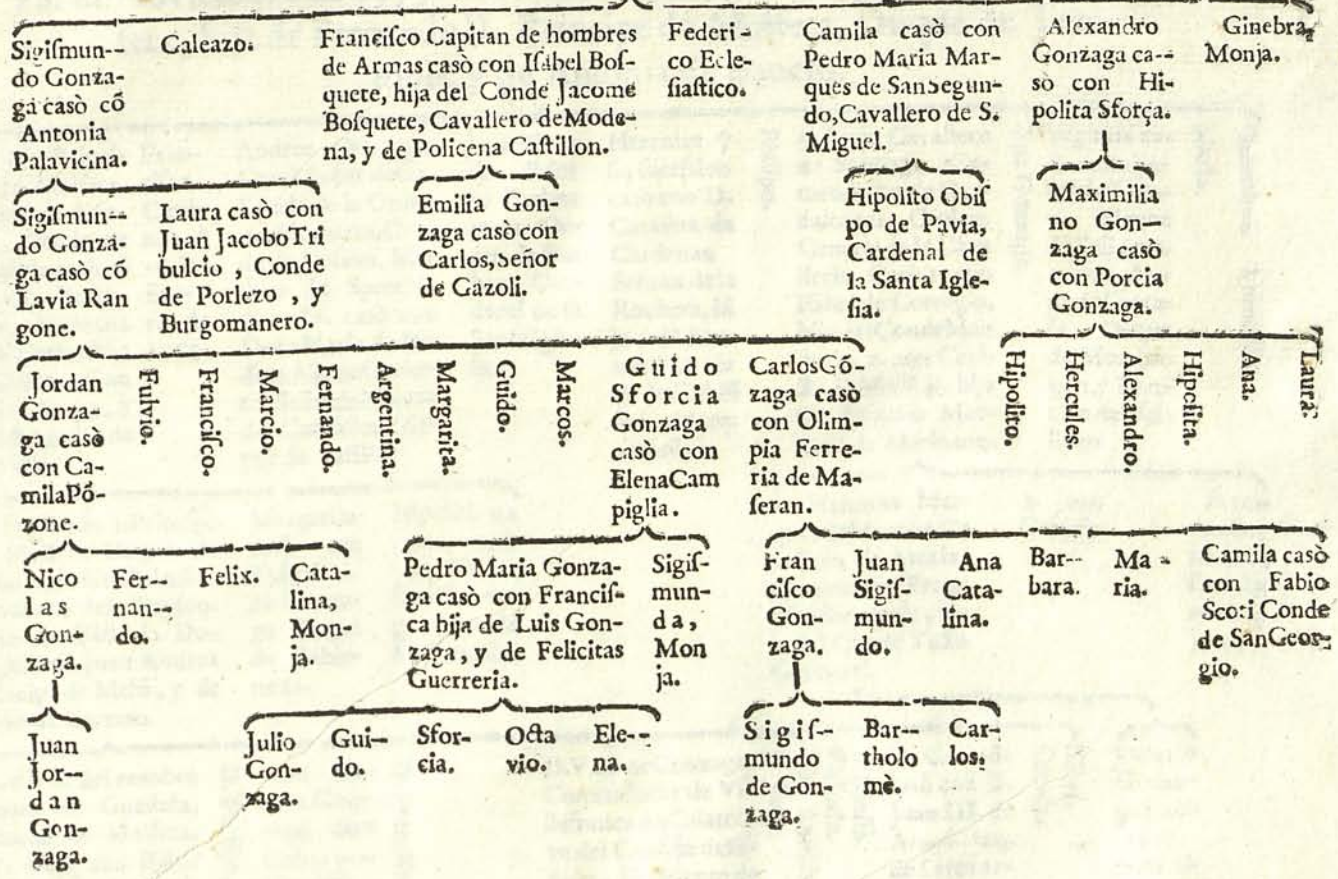 Sigiſmun--
do Gonza-
ga casò cō
Antonia
Palavicina.
Caleazo.
Franciſco Capitan de hombres
de Armas casò con Iſabel Boſ-
quete, hija del Conde Jacome
Boſquete, Cavallero deMode-
na, y de Policena Caſtillon.
Federi-
co Ecle-
ſiaſtico.
Camila casò con
Pedro Maria Mar-
ques de SanSegun-
do, Cavallero de S.
Miguel.
Alexandro
Gonzaga ca--
sò con Hi-
polita Sforça.
Ginebra,
Monja.
Sigiſmun--
do Gonza-
ga casò cō
Lavia Ran
gone.
Laura casò con
Juan JacoboTri
bulcio, Conde
de Porlezo, y
Burgomanero.
Emilia Gon-
zaga casò con
Carlos, Señor
de Gazoli.
Hipolito Obiſ
po de Pavia,
Cardenal de
la Santa Igle-
ſia.
Maximilia
no Gon—
zaga casò
con Porcia
Gonzaga.
Jordan
Gonza-
ga casò
con Ca-
milaPō-
zone.
Fulvio.
Franciſco.
Marcio.
Fernando.
Argentina.
Margarita.
Guido.
Marcos.
Guido
Sforcia
Gonzaga
casò con
ElenaCam
piglia.
CarlosGō-
zaga casò
con Olim-
pia Ferre-
ria de Ma-
ſeran.
Hipolito.
Hercules.
Alexandro.
Hipolita.
Ana.
Laura.
Nico
las
Gon-
zaga.
Fer--
nan--
do.
Felix.
Cata-
lina,
Mon-
ja.
Pedro Maria Gonza-
ga casò con Franciſ-
ca hija de Luis Gon-
zaga, y de Felicitas
Guerreria.
Sigiſ-
mun-
da,
Mon
ja.
Fran
ciſco
Gon-
zaga.
Juan
Sigiſ-
mun-
do.
Ana
Cata-
lina.
Bar--
bara.
Ma-
ria.
Camila casò
con Fabio
Scoti Conde
de SanGeor-
gio.
Juan
Jor--
dan
Gon-
zaga.
Julio
Gon-
zaga.
Gui--
do.
Sfor-
cia.
Octa
vio.
Ele--
na.
Sigiſ--
mundo
de Gon-
zaga.
Bar--
tholo
mè.
Car-
los.